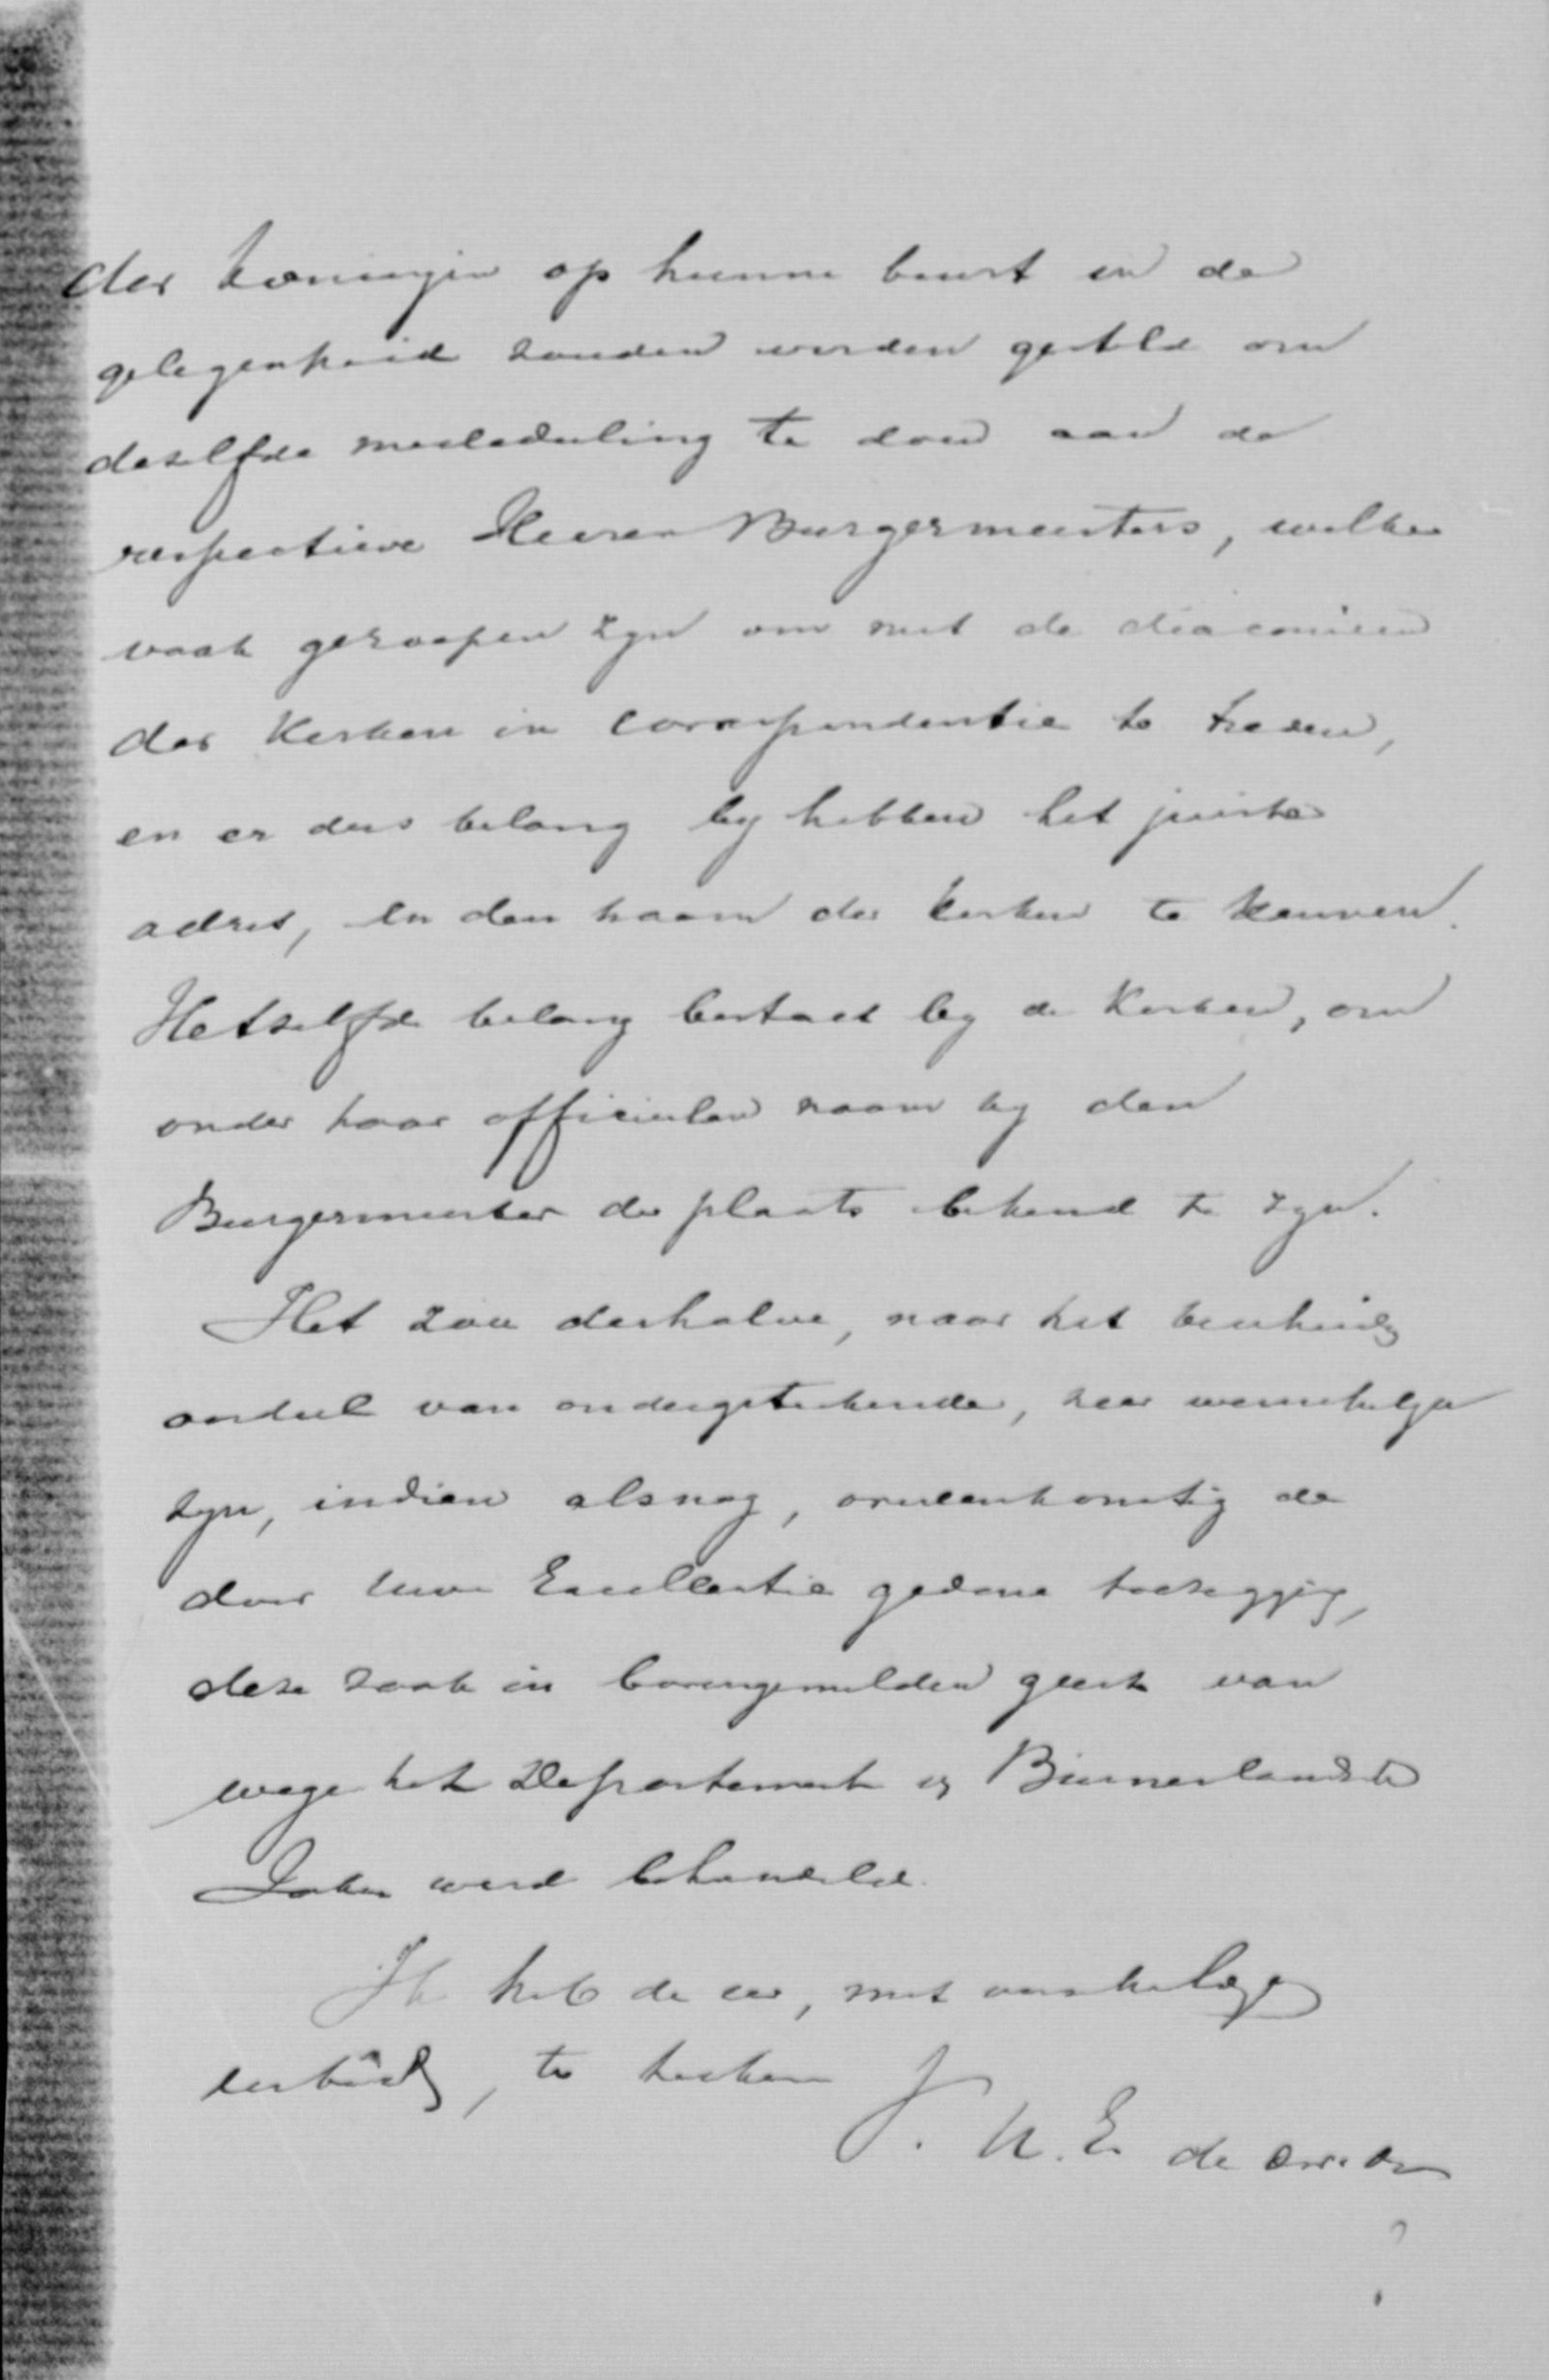 der koningin op hunne beurt in de
gelegenheid zouden worden gesteld om
dezelfde mededeeling te doen aan de
respectieve Heeren Burgermeesters, welke
vaak geroepen zyn om met de diaconieen
der Kerken in correspondentie te treden,
en er dus belang by hebben het juiste
adres, en den naam der kerken te kennen.
Hetzelfde belang bestaat by de Kerken, om
onder haar officieelen naam by den
Burgermeester der plaats bekend te zyn.
Het zou derhalve, naar het bescheiden
oordeel van ondergeteekende, zeer wenschelyk
zyn, indien alsnog, overeenkomstig de
door Uwe Excellentie gedane toezegging,
deze zaak in bovengemelden geest van
wege het Departement v Binnenlandsche
Zaken werd behandeld.
Ik heb de eer, met verschuldigde
eerbied, te teekenen
V. U. E. de
?